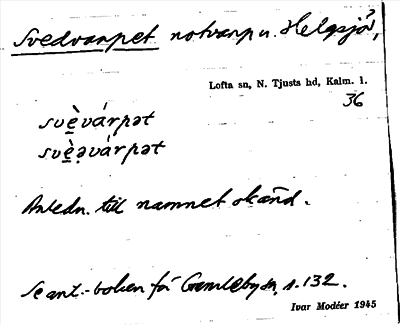 Svedvarpet notvarp u. Helgsjö?,
Lofta sn, N. Tjusts hd, Kalm. l.
36
svèvárpət
svèəvárpət
Anledn. till namnet okänd.
Se ant.-boken för Gamleby sn, s. 132.
Ivar Modéer 1945